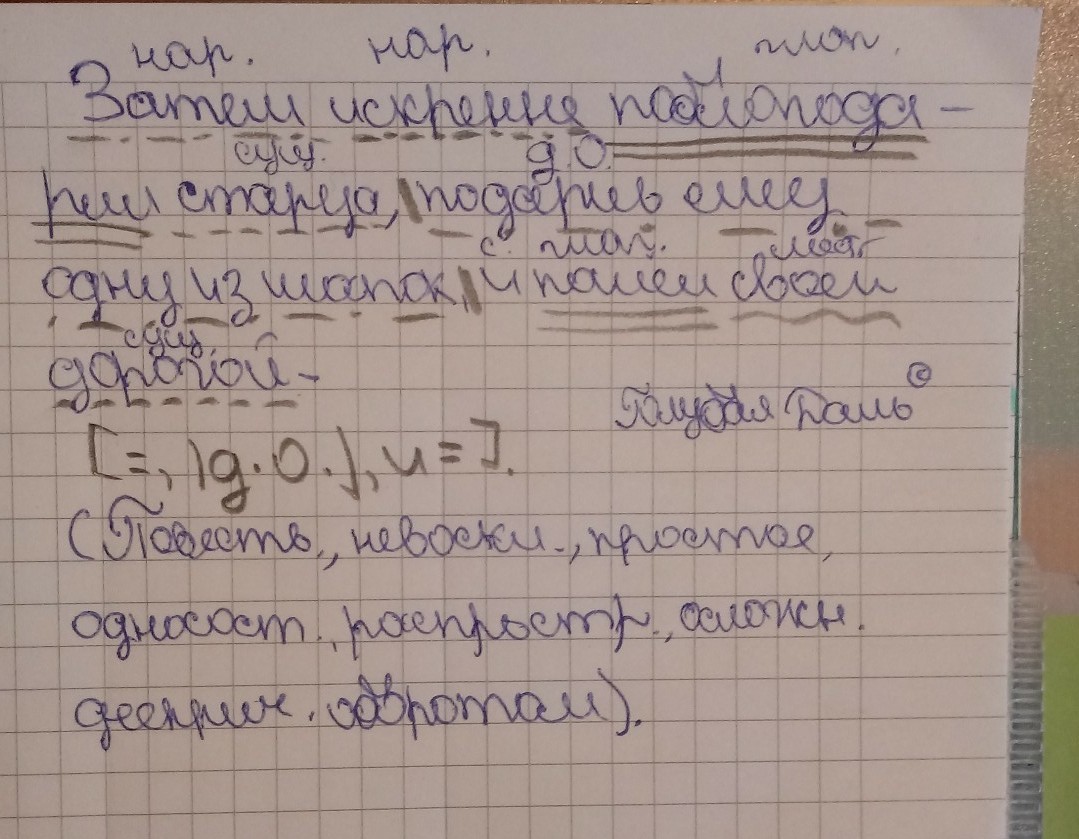 нар. нар. глаг.
Затем искренне поблагода-
сущ. д.О.
рил старца, подарив ему
с. глаг. мест.
одну из шапок, и пошел своей
сущ.
дорогой.
Голубая Даль ©
[=, |д.О.|, и =].
(Повеств., невоскл., простое,
односост., распростр., осложн.
дееприч. оборотом).